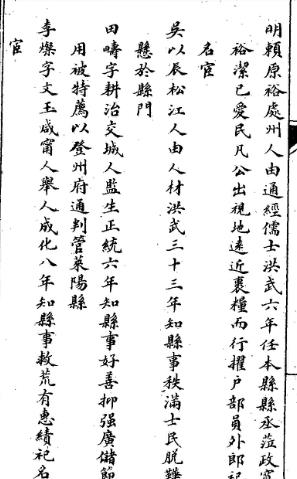 明賴原裕處州人由通經儒士洪武六年任本縣縣丞蒞政寬
裕潔已愛民凡公出視地遠近裹糧而行擢户部員外郎祀
名宦
吳以辰松江人由人材洪武三十三年知縣事秩滿士民脱鞾
懸於縣門
田疇字耕治交城人監生正統六年知縣事好善抑强廣儲節
用被特薦以登州府通判管萊陽縣
李燦字文玉咸甯人舉人成化八年知縣事救荒有惠績祀名
宦